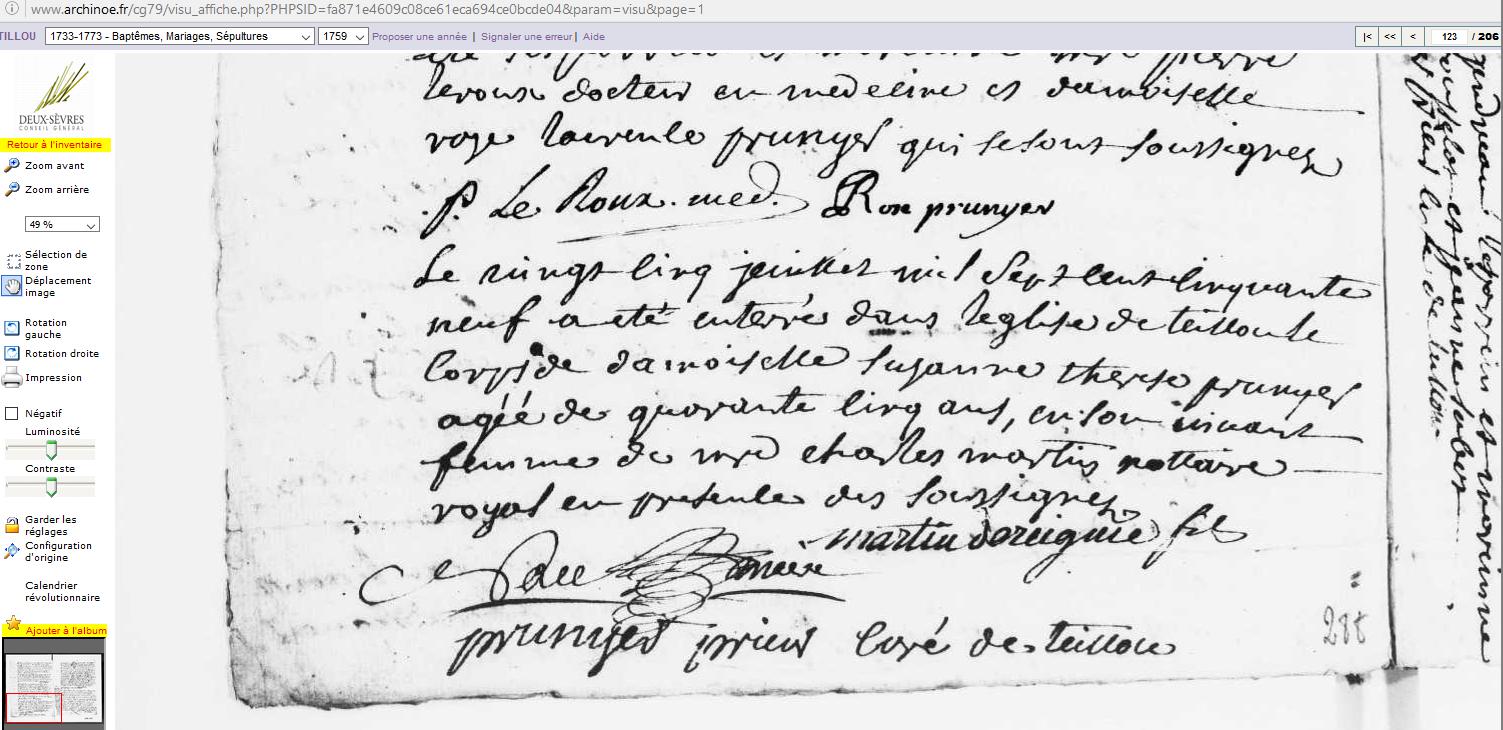 www.archinoe.fr/cg79/visu_affiche.php?PHPSID=fa871e4609c08ce61eca694ce0bcde04&param=visu&page=1
TILLOU
1733-1773 - Baptêmes, Mariages, Sépultures
1759
Proposer une année | Signaler une erreur | Aide
|< << < 123 / 206
DEUX-SÈVRES
CONSEIL GÉNÉRAL
Retour à l'inventaire
Zoom avant
Zoom arrière
49 %
Sélection de
zone
Déplacement
image
Rotation
gauche
Rotation droite
Impression
Négatif
Luminosité
Contraste
Garder les
réglages
Configuration
d'origine
Calendrier
révolutionnaire
Ajouter à l'album
pierre
leroux docteur en medecine et damoiselle
roze laurence prunyer qui se sont soussignez
P. Le Roux. med. Rose prunyer
Le vingt cinq jeuillet mil sept cent cinquante
neuf a eté enterrée dans leglise de teillou le
corps de damoiselle suzanne therese prunyer
agée de quarante cinq ans, en son vivant
femme de mre charles martin nottaire
royal en presence des soussignez
martin fils
prunyer prieur curé de teillou
288